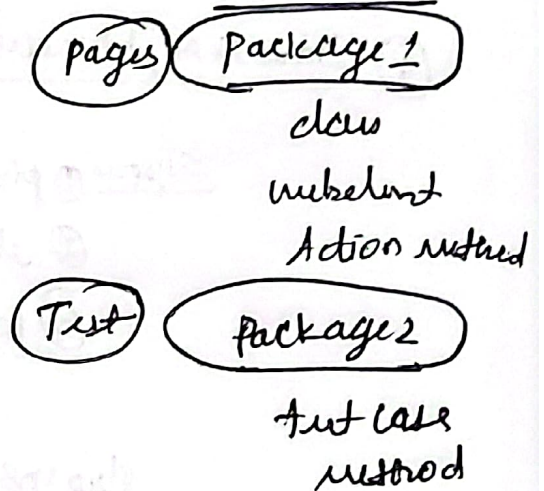 Pages Package 1
class
webelement
Action method
Test Package 2
test case
method